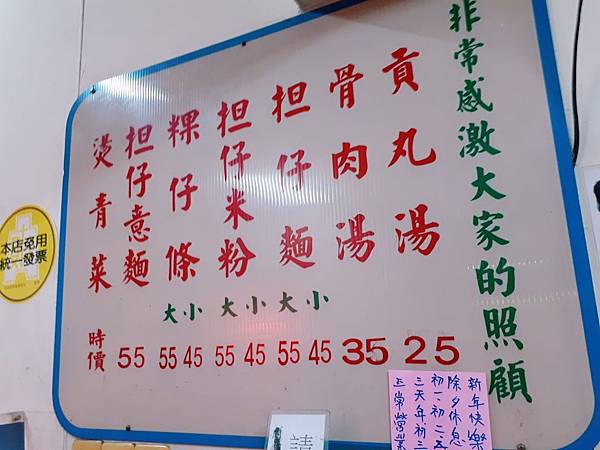 非常感激大家的照顧
貢丸湯 25
骨肉湯 35
担仔麵 大 小 55 45
担仔米粉 大 小 55 45
粿仔條 大 小 55 45
担仔意麵 55
燙青菜 時價
本店免用
統一發票
新年快樂
除夕休息
初一、初二
三天年初三
正常營業
請